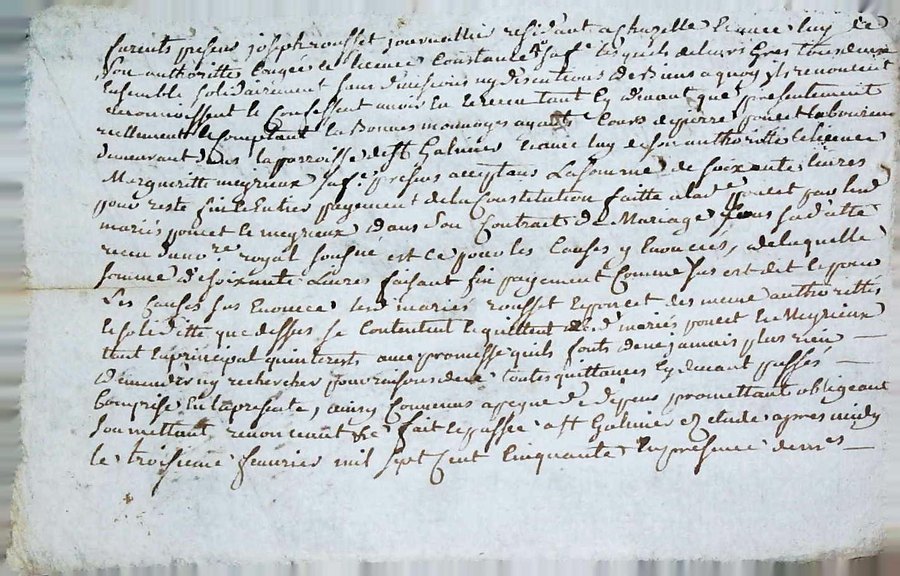 parents presens joseph rousset journallier residant a Chazelle Licance luy de
son authoritté Congée et licence Constance sa f. lesquels de leurs grés tous deux
Ensemble solidairement sans division ny discutions de Biens a quoy ils renoncent
reconnoissent et Confessent avoir Eu et receu tant Cy devant que presentement
reellement et Comptant En Bonnes monnoyes ayants Cours de pierre poncet laboureur
demeurant dans la parroisse de st Galmier Licance luy de son authoritté et licence
Margueritte meyrieux sa f.e presens acceptans La somme de soixante livres
pour reste fin et Entier payement de la Constitution faitte a lad.e poncet par led
mariés poncet et meyrieux dans son Contract de Mariage sous sa datte
receu du no.re royal soussné est Ce pour les Causes y Enoncées, de laquelle
somme de soixante Livres faisant fin payement Comme sus est dit et pour
Les Causes sus Enoncée les d mariés rousset et poncet des meme authorittés
et soliditté que dessus se Contentent et quittent les d mariés poncet et Meyrieux
tant En principal qu'interests avec promesse qu'ils fonts de ne jamais plus rien
demander ny rechercher pour raisons de ce toutes quittances Cy devant passés
Comprise En la presente, ainsy Convenus a peyne de depens promettant obligeant
soumettant renoncant &c fait et passé a st Galmier Ez etude apres midy
le troisieme fevrier mil sept Cent Cinquante En presence de mes